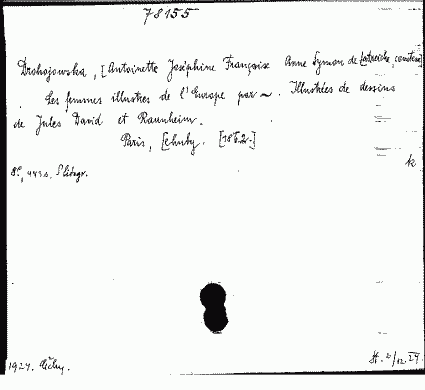 78155
Drohojowska, [Antoinette Joséphine Françoise Anne Symon de Latreiche, comtesse]
Les femmes illustres de l'Europe par ~. Illustrées de dessins
de Jules David et Raunheim.
Paris, [1852.]
k
8°, 443 s.
1924.
2/12 24